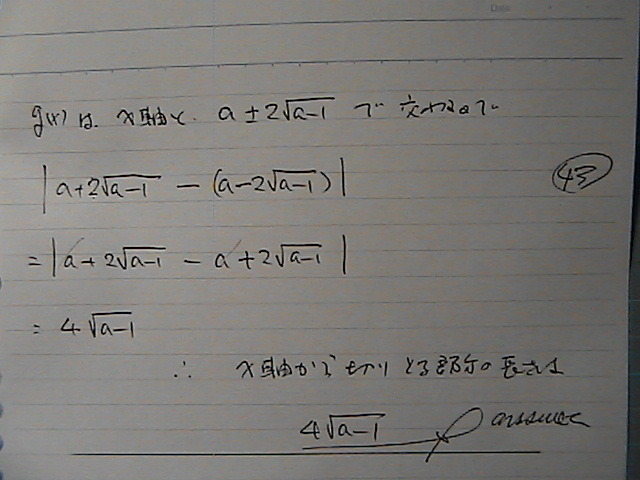 g(x)は x軸と a±2√a-1 で 交わるので
|a+2√a-1 - (a-2√a-1)|
43
= |a+2√a-1 - a+2√a-1|
= 4√a-1
∴ x軸から切りとる部分の長さは
4√a-1 answer